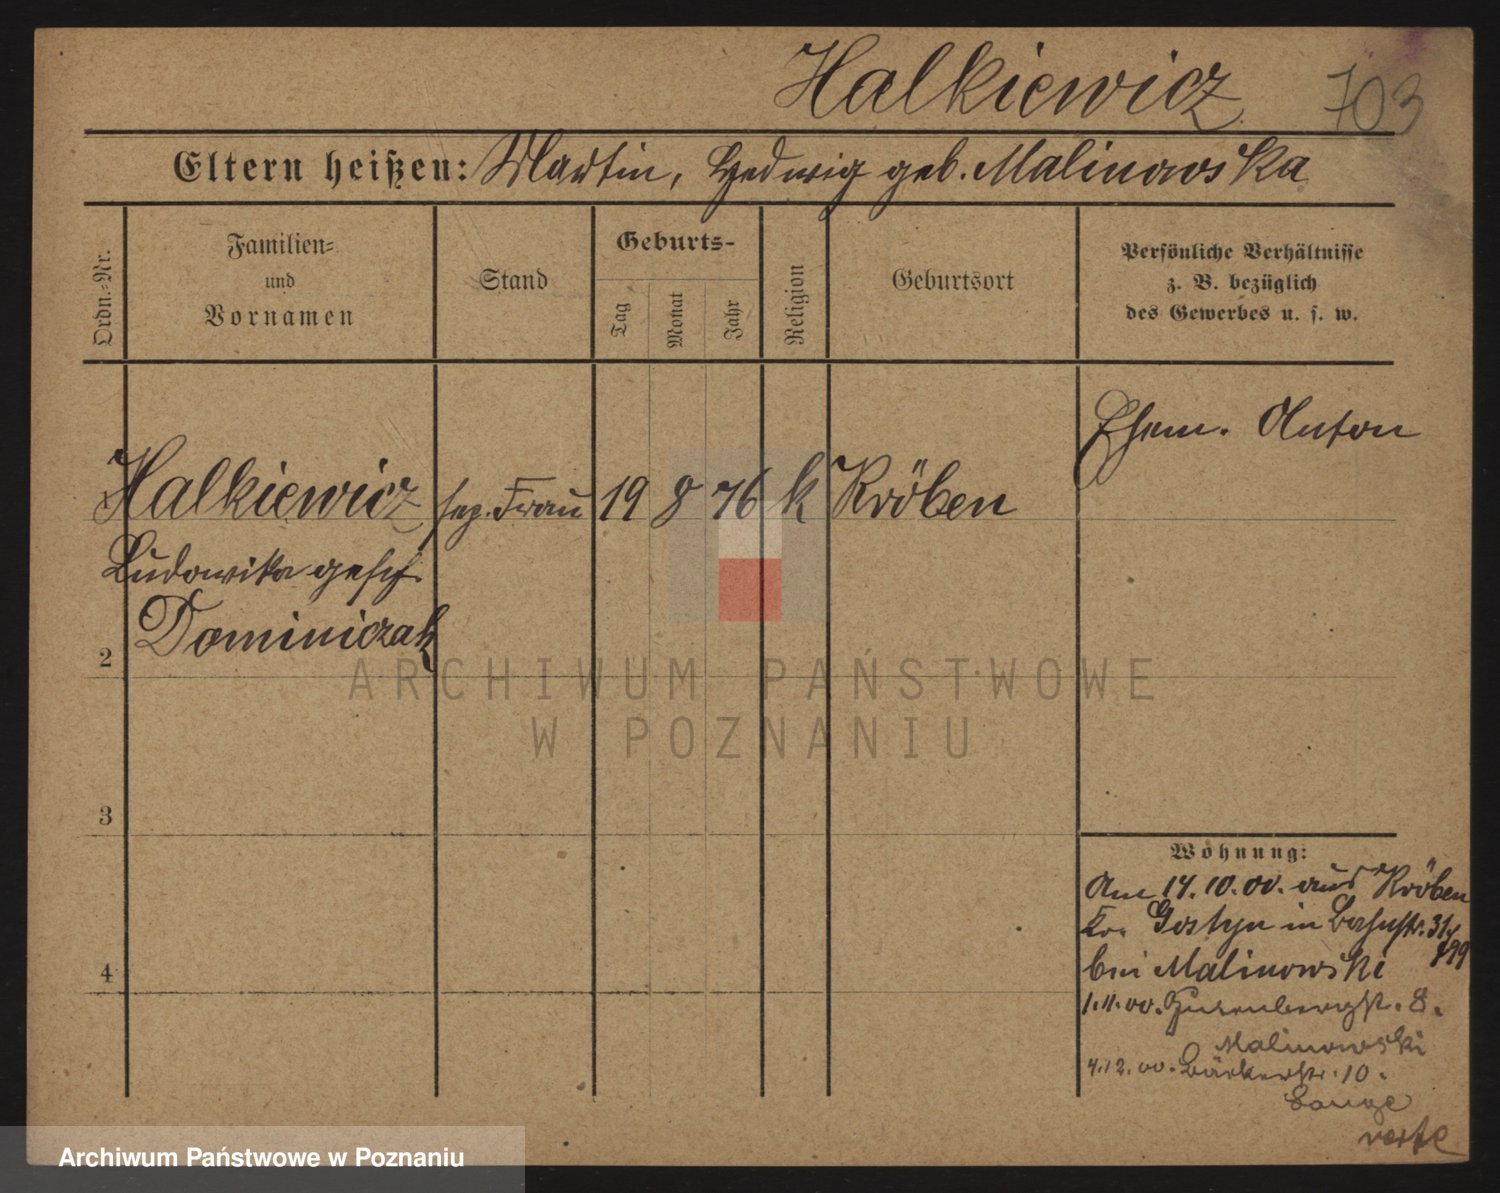 Halkiewicz 703
Eltern heißen: Martin, Hedwig geb. Malinowska
Ordn.-Nr.
Familien-
und
Vornamen
Stand
Geburts-
Tag
Monat
Jahr
Religion
Geburtsort
Persönliche Verhältnisse
z. B. bezüglich
des Gewerbes u. s. w.
Ehem. Anton
Halkiewicz sep. Frau 19 8 76 k Kröben
Ludowika gesch.
Dominiczak
2
3
4
Wohnung:
Am 14.10.00. aus Kröben
Kr. Gostyn in 31/
bei Malinowski 899
1.11.00. 8.
Malinowski
4.12.00. Bäckerstr. 10.
Lange
verte
ARCHIWUM PAŃSTWOWE
W POZNANIU
Archiwum Państwowe w Poznaniu